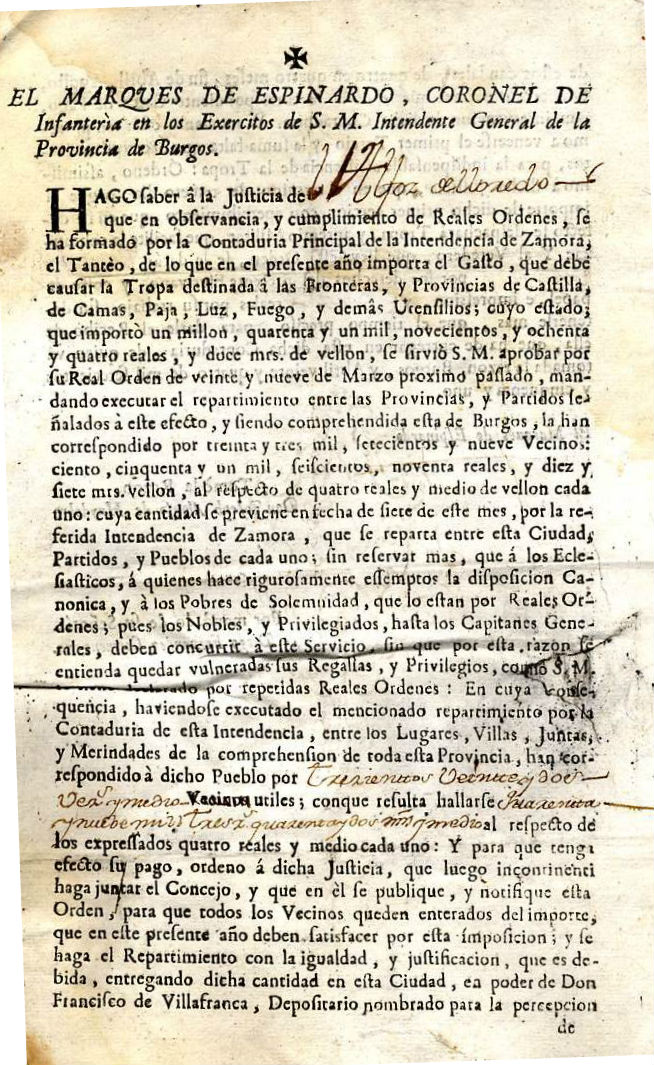 EL MARQUES DE ESPINARDO, CORONEL DE
Infanterìa en los Exercitos de S. M. Intendente General de la
Provincia de Burgos.
HAGO saber â la Justicia de
que en observancia, y cumplimiento de Reales Ordenes, se
ha formado por la Contaduria Principal de la Intendencia de Zamora,
el Tantèo, de lo que en el presente año importa el Gasto, que debe
causar la Tropa destinada á las Fronteras, y Provincias de Castilla,
de Camas, Paja, Luz, Fuego, y demâs Utensilios; cuyo estado;
que importò un millon, quarenta y un mil, novecientos, y ochenta
y quatro reales, y doce mrs. de vellon, se sirviò S. M. aprobar por
su Real Orden de veinte y nueve de Marzo proximo passado, man-
dando executar el repartimiento entre las Provincias, y Partidos se-
ñalados à este efecto, y siendo comprehendida esta de Burgos, la han
correspondido por treinta y tres mil, setecientos y nueve Vecinos:
ciento, cinquenta y un mil, seiscientos, noventa reales, y diez y
siete mrs. vellon, al respecto de quatro reales y medio de vellon cada
uno: cuya cantidad se previene en fecha de siete de este mes, por la re-
ferida Intendencia de Zamora, que se reparta entre esta Ciudad,
Partidos, y Pueblos de cada uno; sin reservar mas, que á los Ecle-
siasticos, á quienes hace rigurosamente essemptos la disposicion Ca-
nonica, y à los Pobres de Solemnidad, que lo estan por Reales Or-
denes; pues los Nobles, y Privilegiados, hasta los Capitanes Gene-
rales, deben concurrir à este Servicio, sin que por esta razon se
entienda quedar vulneradas sus Regalìas, y Privilegios, como S. M.
por repetidas Reales Ordenes: En cuya conse-
quencia, haviendose executado el mencionado repartimiento por la
Contaduria de esta Intendencia, entre los Lugares, Villas, Juntas,
y Merindades de la comprehension de toda esta Provincia, han cor-
respondido à dicho Pueblo por Trezientos Veinte y dos
Vez.s y medio Vecinos utiles; conque resulta hallarse
al respecto de
los expressados quatro reales y medio cada uno: Y para que tenga
efecto su pago, ordeno á dicha Justicia, que luego incontinenti
haga juntar el Concejo, y que en èl se publique, y notifique esta
Orden, para que todos los Vecinos queden enterados del importe,
que en este presente año deben satisfacer por esta imposicion; y se
haga el Repartimiento con la igualdad, y justificacion, que es de-
bida, entregando dicha cantidad en esta Ciudad, en poder de Don
Francisco de Villafranca, Depositario nombrado para la percepcion
de